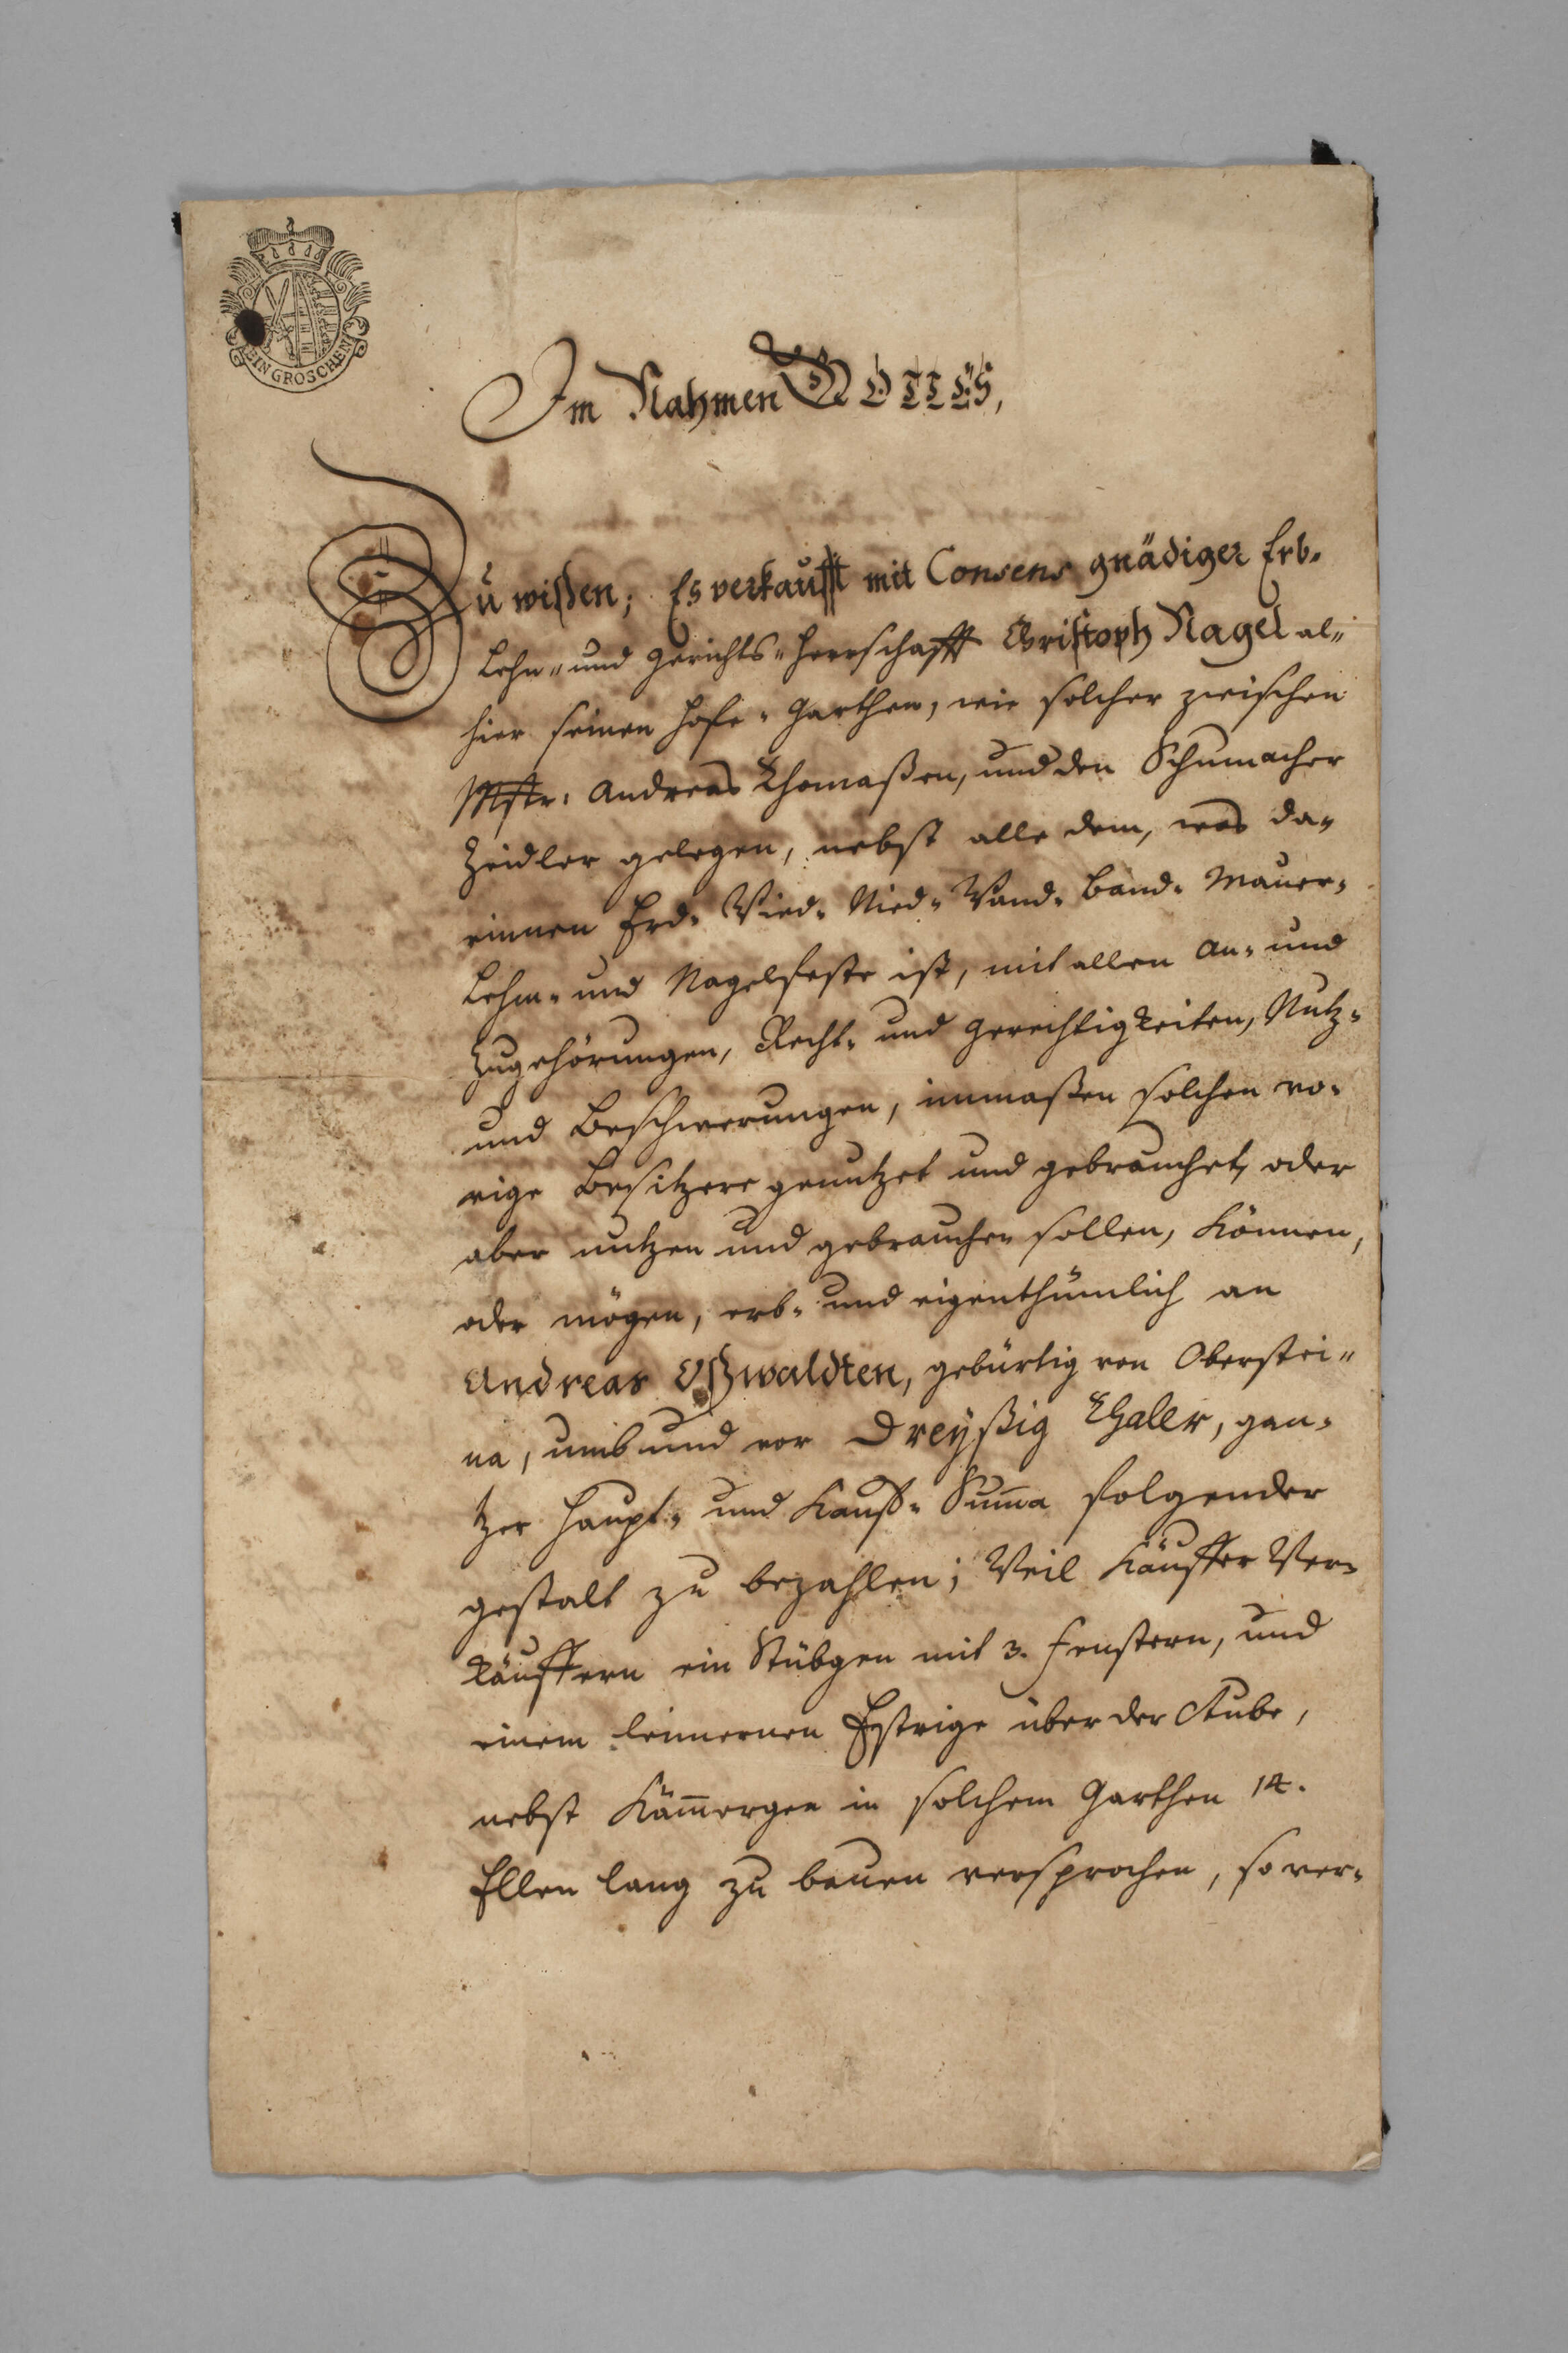 EIN GROSCHEN
Im Nahmen GOTTES,
Zu wißen; Es verkaufft mit Consens gnädiger Erb-
Lehn- und Gerichts-Herrschafft Christoph Nagel al-
hier seinen Hofe-Garthen, wie solcher zwischen
Mstr: Andreas Thomaßen, und den Schumacher
Zeidler gelegen, nebst alle dem, was da-
rinnen Erd- Wied- Nied- Wand- Band- Mauer-
Lehm- und Nagelfeste ist, mit allen An- und
Zugehörungen, Recht- und Gerechtigkeiten, Nutz-
und Beschwerungen, inmaßen solchen vo-
rige Besitzere genutzet und gebrauchet, oder
aber nutzen und gebrauchen sollen, können,
oder mögen, erb- und eigenthümlich an
Andreas Oßwaldten, gebürtig von Oberstei-
na, umb und vor Dreyßig Thaler, gan-
tzer Haupt- und Kauff-Sum̅a folgender
gestalt zu bezahlen; Weil Käuffer Ver-
käuffern ein Stübgen mit 3. Fenstern, und
einem leimernen Estrige über der Stube,
nebst Kam̅ergen in solchem Garthen 14.
Ellen lang zu bauen versprochen, so ver-